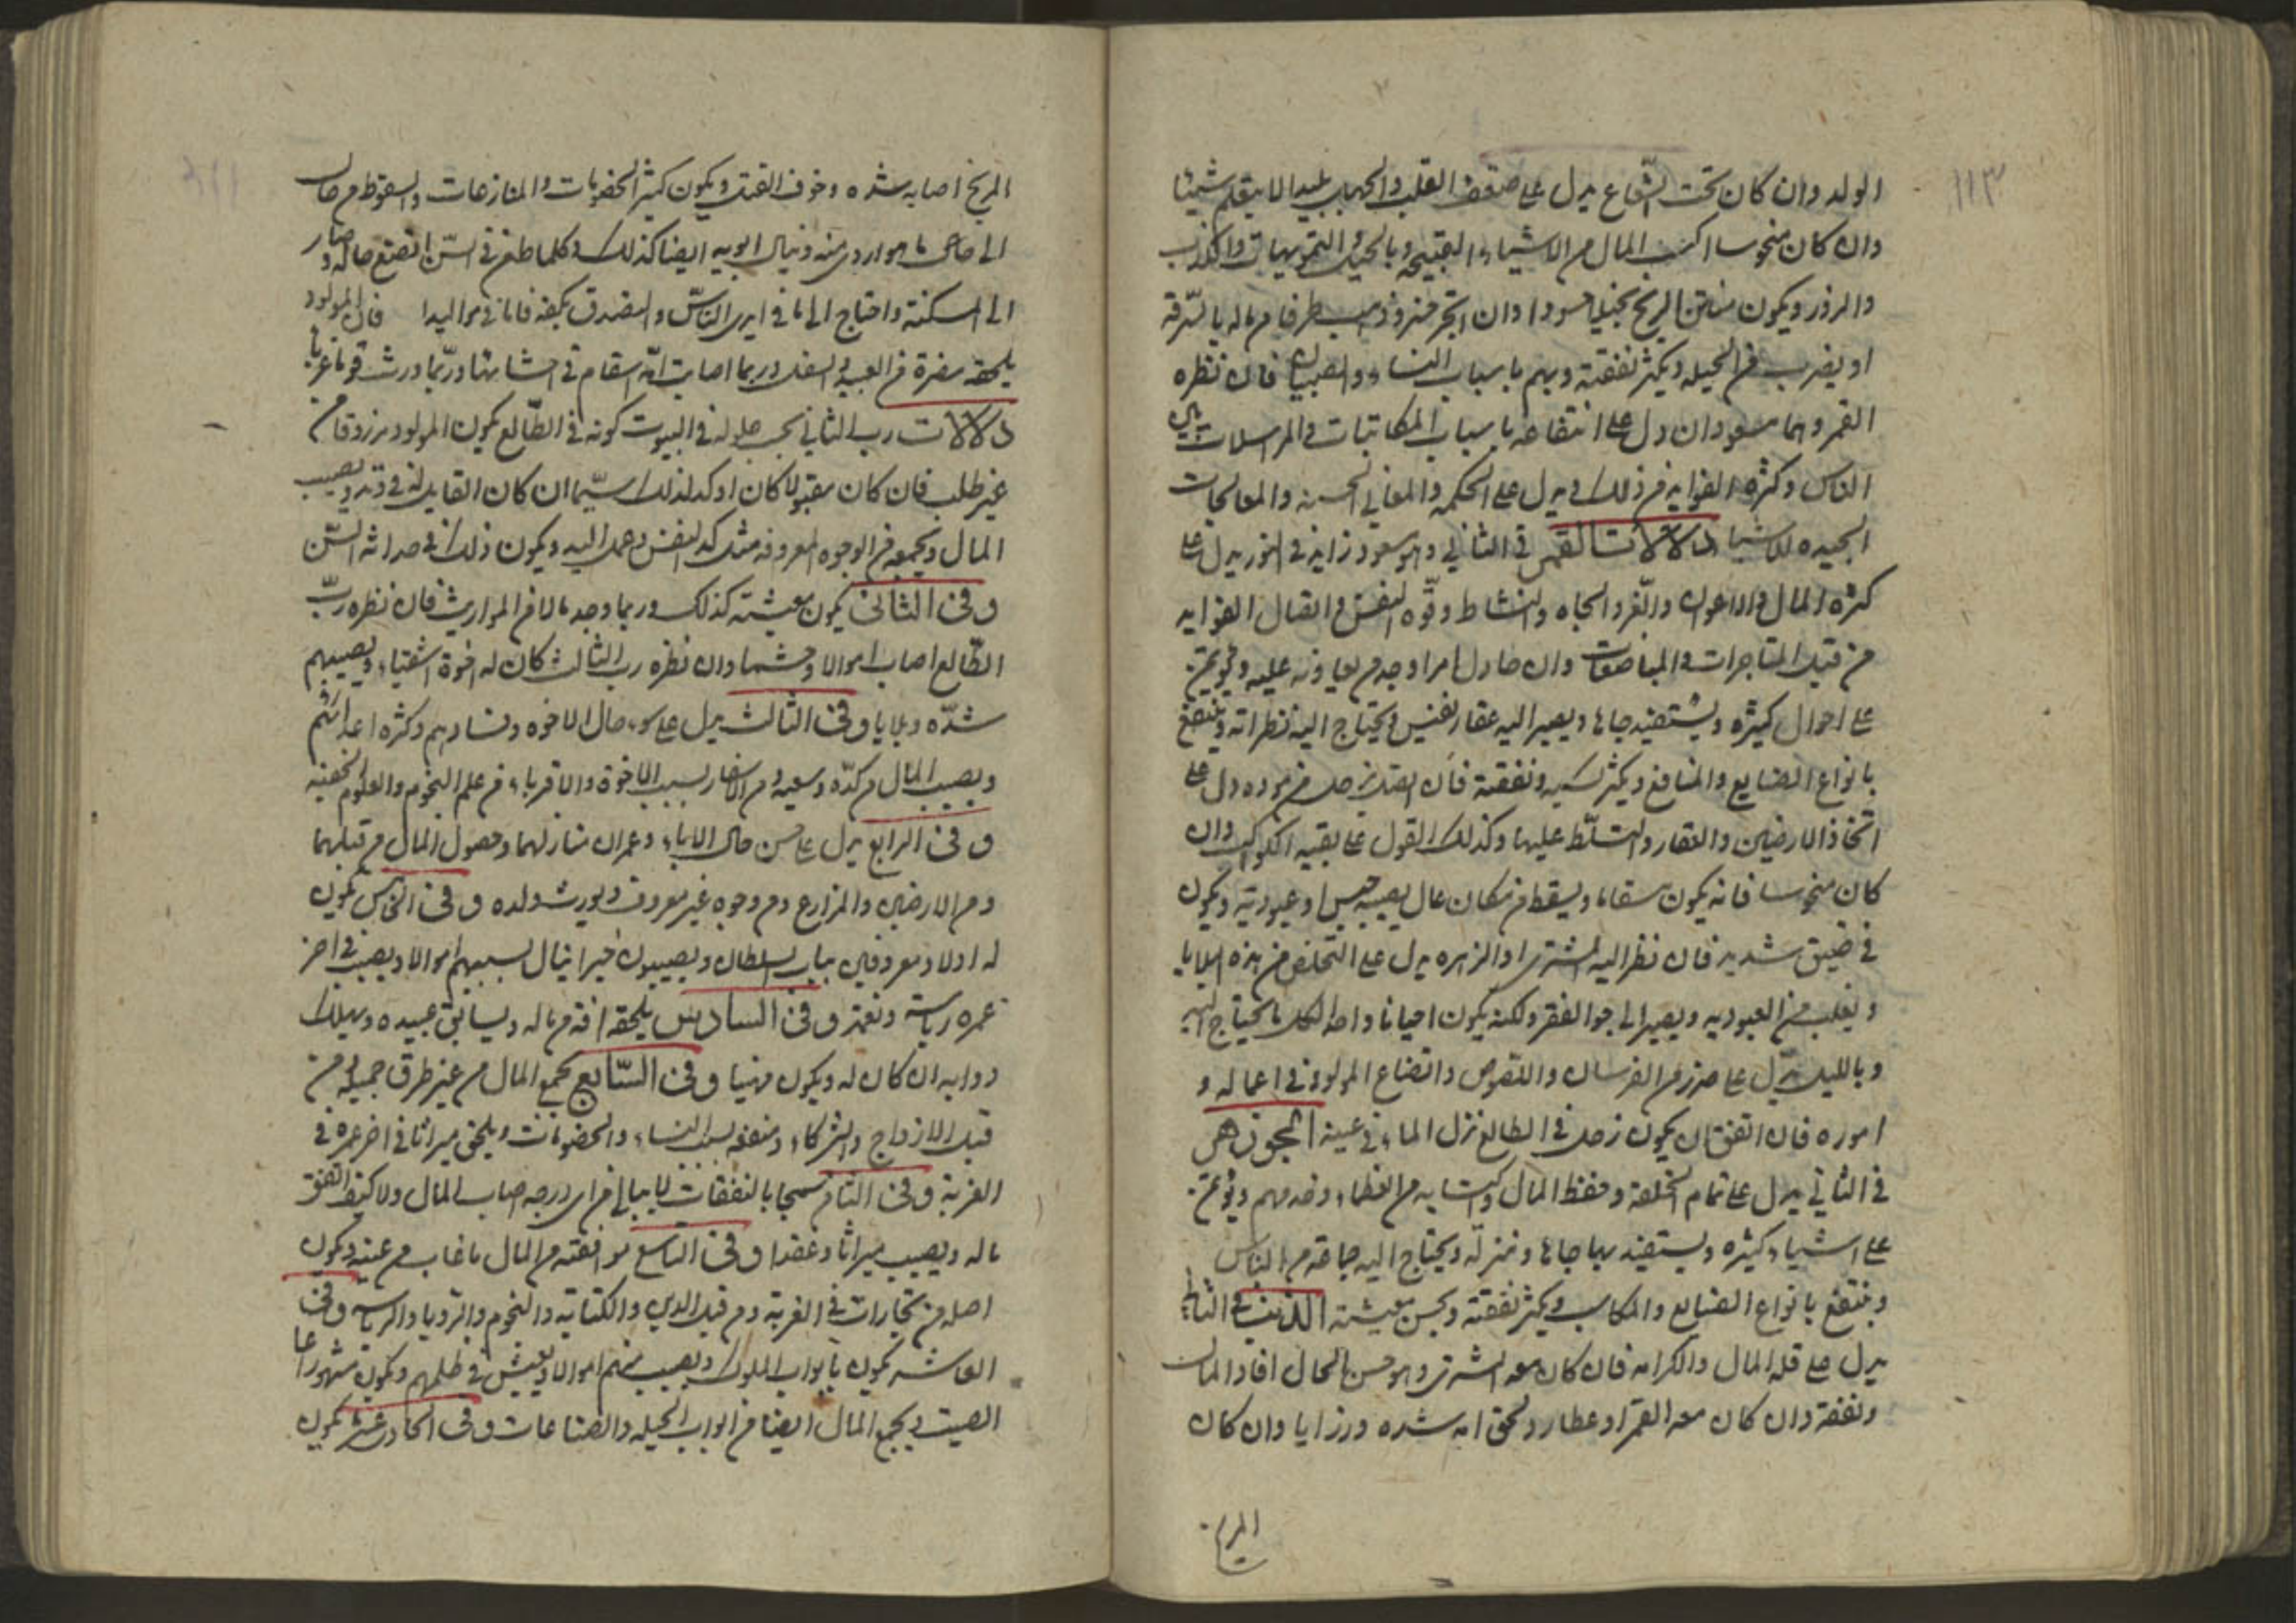 ١١٣
الولد وان كان تحت الشعاع يدل على ضعف القلب بليدا لا يتعلم شيئا
وان كان منحوسا اكتسب المال من الاشياء القبيحة وبالحيل والتمويهات والكذب
والزور ويكون منتن الريح بخيلا حسودا وان اتجر خسر وذهب طرفا من ماله بالسرقة
او بضرب من الحيله ويكثر نفقته ويهم باسباب النساء والصبيان فان نظره
القمر وهما مسعودان دل على انتفاعه باسباب المكاتبات والمراسلات بين
الناس وكثرة الفوايد من ذلك ويدل على الحكمه والمعاني الحسنه والمعالجات
الجيده للاشيا دلالات القمر في الثاني وهو مسعود زايد في النور يدل على
كثرة المال والاعوان والعز والجاه والنشاط وقوه النفس واتصال الفوايد
من قبل المتاجرات والمبايعات وان حاول امرا وجد من يعاونه عليه ويؤتمن
على احوال كثيره ويستفيد جاها ويصير اليه عقار نفيس ويحتاج اليه نظراته وينتفع
بانواع الصنايع والمنافع ويكثر كسبه ونفقته فان اتصل بزحل من موده دل على
اتخاذ الارضين والعقار والتسلط عليها وكذلك القول على بقيه الكواكب وان
كان منحوسا فانه يكون سقاما ويسقط من مكان عال يصيبه حبس او عبودية ويكون
في ضيق شديد فان نظر اليه المشترى او الزهره يدل على التخلص من هذه البلايا
ويفلت من العبوديه ويصير الى جو الفقر ولكنه يكون احيانا واجدا لكل ما يحتاج اليه
وبالليل يدل على ضرر من الفرسان واللصوص واتضاع المولود في اعماله و
اموره فان اتفق ان يكون زحل في الطالع نزل الماء في عينه الجوزهر
في الثاني يدل على تمام الخلقة وحفظ المال واكتسابه من العظماء وخدمهم ويؤتمن
على اشياء كثيره ويستفيد بها جاها ومنزله ويحتاج اليه جماعه من الناس
وينتفع بانواع الصنايع والمكاسب ويكثر نفقته ويحسن معيشته الذنب في الثاني
يدل على قله المال والكرامه فان كان معه المشترى وهو حسن الحال افاد المال
ونفقه وان كان معه القمر او عطارد لحق امه شده ورزايا وان كان
المريخ
المريخ اصابه شده وخوف القتل ويكون كثير الخصومات والمنازعات والسقوط من حال
الى حال ما هو اردى منه وينال ابويه ايضا كذلك وكلما طعن في السن اتضع حاله وصار
الى المسكنة واحتاج الى ما في ايدى الناس والتصدق بكفه فاما في مواليد فان المولود
يلحقه مضرة من العبيد والسفل وربما اصابت امه اسقام في احشائها وربما ورث قوما غربا
دلالات رب الثاني بحسب حلوله في البيوت كونه في الطالع يكون المولود مرزوقا من
غير طلب فان كان مقبولا كان اوكد لذلك سيما ان كان القابل له في وتد ويصيب
المال ويجمعه من الوجوه المعروفه مثل كد النفس وحمل اليه ويكون ذلك في حداثه السن
وفي الثاني يكون معيشته كذلك وربما وجد مالا من المواريث فان نظره رب
الطالع اصاب اموالا وحشما وان نظره رب الثالث كان له اخوة اشقياء ويصيبهم
شدّه وبلايا وفي الثالث يدل على سوء حال الاخوه وفسادهم وكثره اعدائهم
ويصيب المال من كدّه وسعيه ومن الاسفار بسبب الاخوة والاقرباء ومن علم النجوم والعلوم الخفيه
وفي الرابع يدل على حسن حال الاباء وعمران منازلهما وحصول المال من قبلهما
ومن الارضين والمزارع ومن وجوه غير معروف ويورث ولده وفي الخامس يكون
له اولاد معروفين بباب السلطان ويصيبون خيرا ينال بسببهم اموالا ويصيب في اخر
عمره رياسة ونعمة وفي السادس يلحقه افه من ماله ويسابق عبيده ويهلك
دوابه ان كان له ويكون مهنيا وفي السابع يجمع المال من غير طرق جميله من
قبل الازواج والشركاء ومنفعه بسبب النساء والخصومات ويلحق ميراثا في اخر عمره في
الغربة وفي الثامن سمحا بالنفقات لا يبالي من اى وجه اصاب المال ولا كيف انفق
ماله ويصيب ميراثا وعقدا وفي التاسع موافقته من المال ما غاب من عينه ويكون
اصله من تجارات في الغربة ومن قبل الدين والكتابه والنجوم والرويا والرساله وفي
العاشر يكون بابواب الملوك ويصيب منهم اموالا ويعيش في ظلهم ويكون مشهورا عالى
الصيت ويجمع المال ايضا من ابواب الحيله والصناعات وفي الحادى عشر يكون